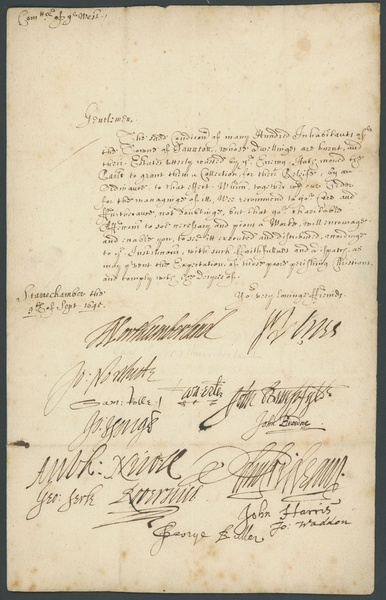 Com tee of ye West
Gentlemen,
The sad Condicon of many Hundred Inhabitants of
the Towne of Taunton, whose dwellings are burnt, and
their Estates utterly wasted by ye Enemy, hath moved the
Parlt to grant them a Collection, for their Releife, by an
Ordinance to that effect. Which, together with our Order
for the managing of it, Wee recommend to yor Care and
furtherance, not doubting, but that yor charitable
Affeccon to soe necessary and pious a Worke, will encourage
and enable you, to see it executed and distributed, according
to ye Instruccons, with such faithfullnes and
may prevent the Expectation of these poore perishing Christians,
and comply with the desyres of
Starrchamber the
9th of Sept. 1645.
Yor very loving ffriends
Northumberland
Jo: Northcote
Sam: Rolle
Jo: Yonge
John Browne
Anth: Nicoll
Geo: Serle
John Harris
Jo: Waddon
George Buller